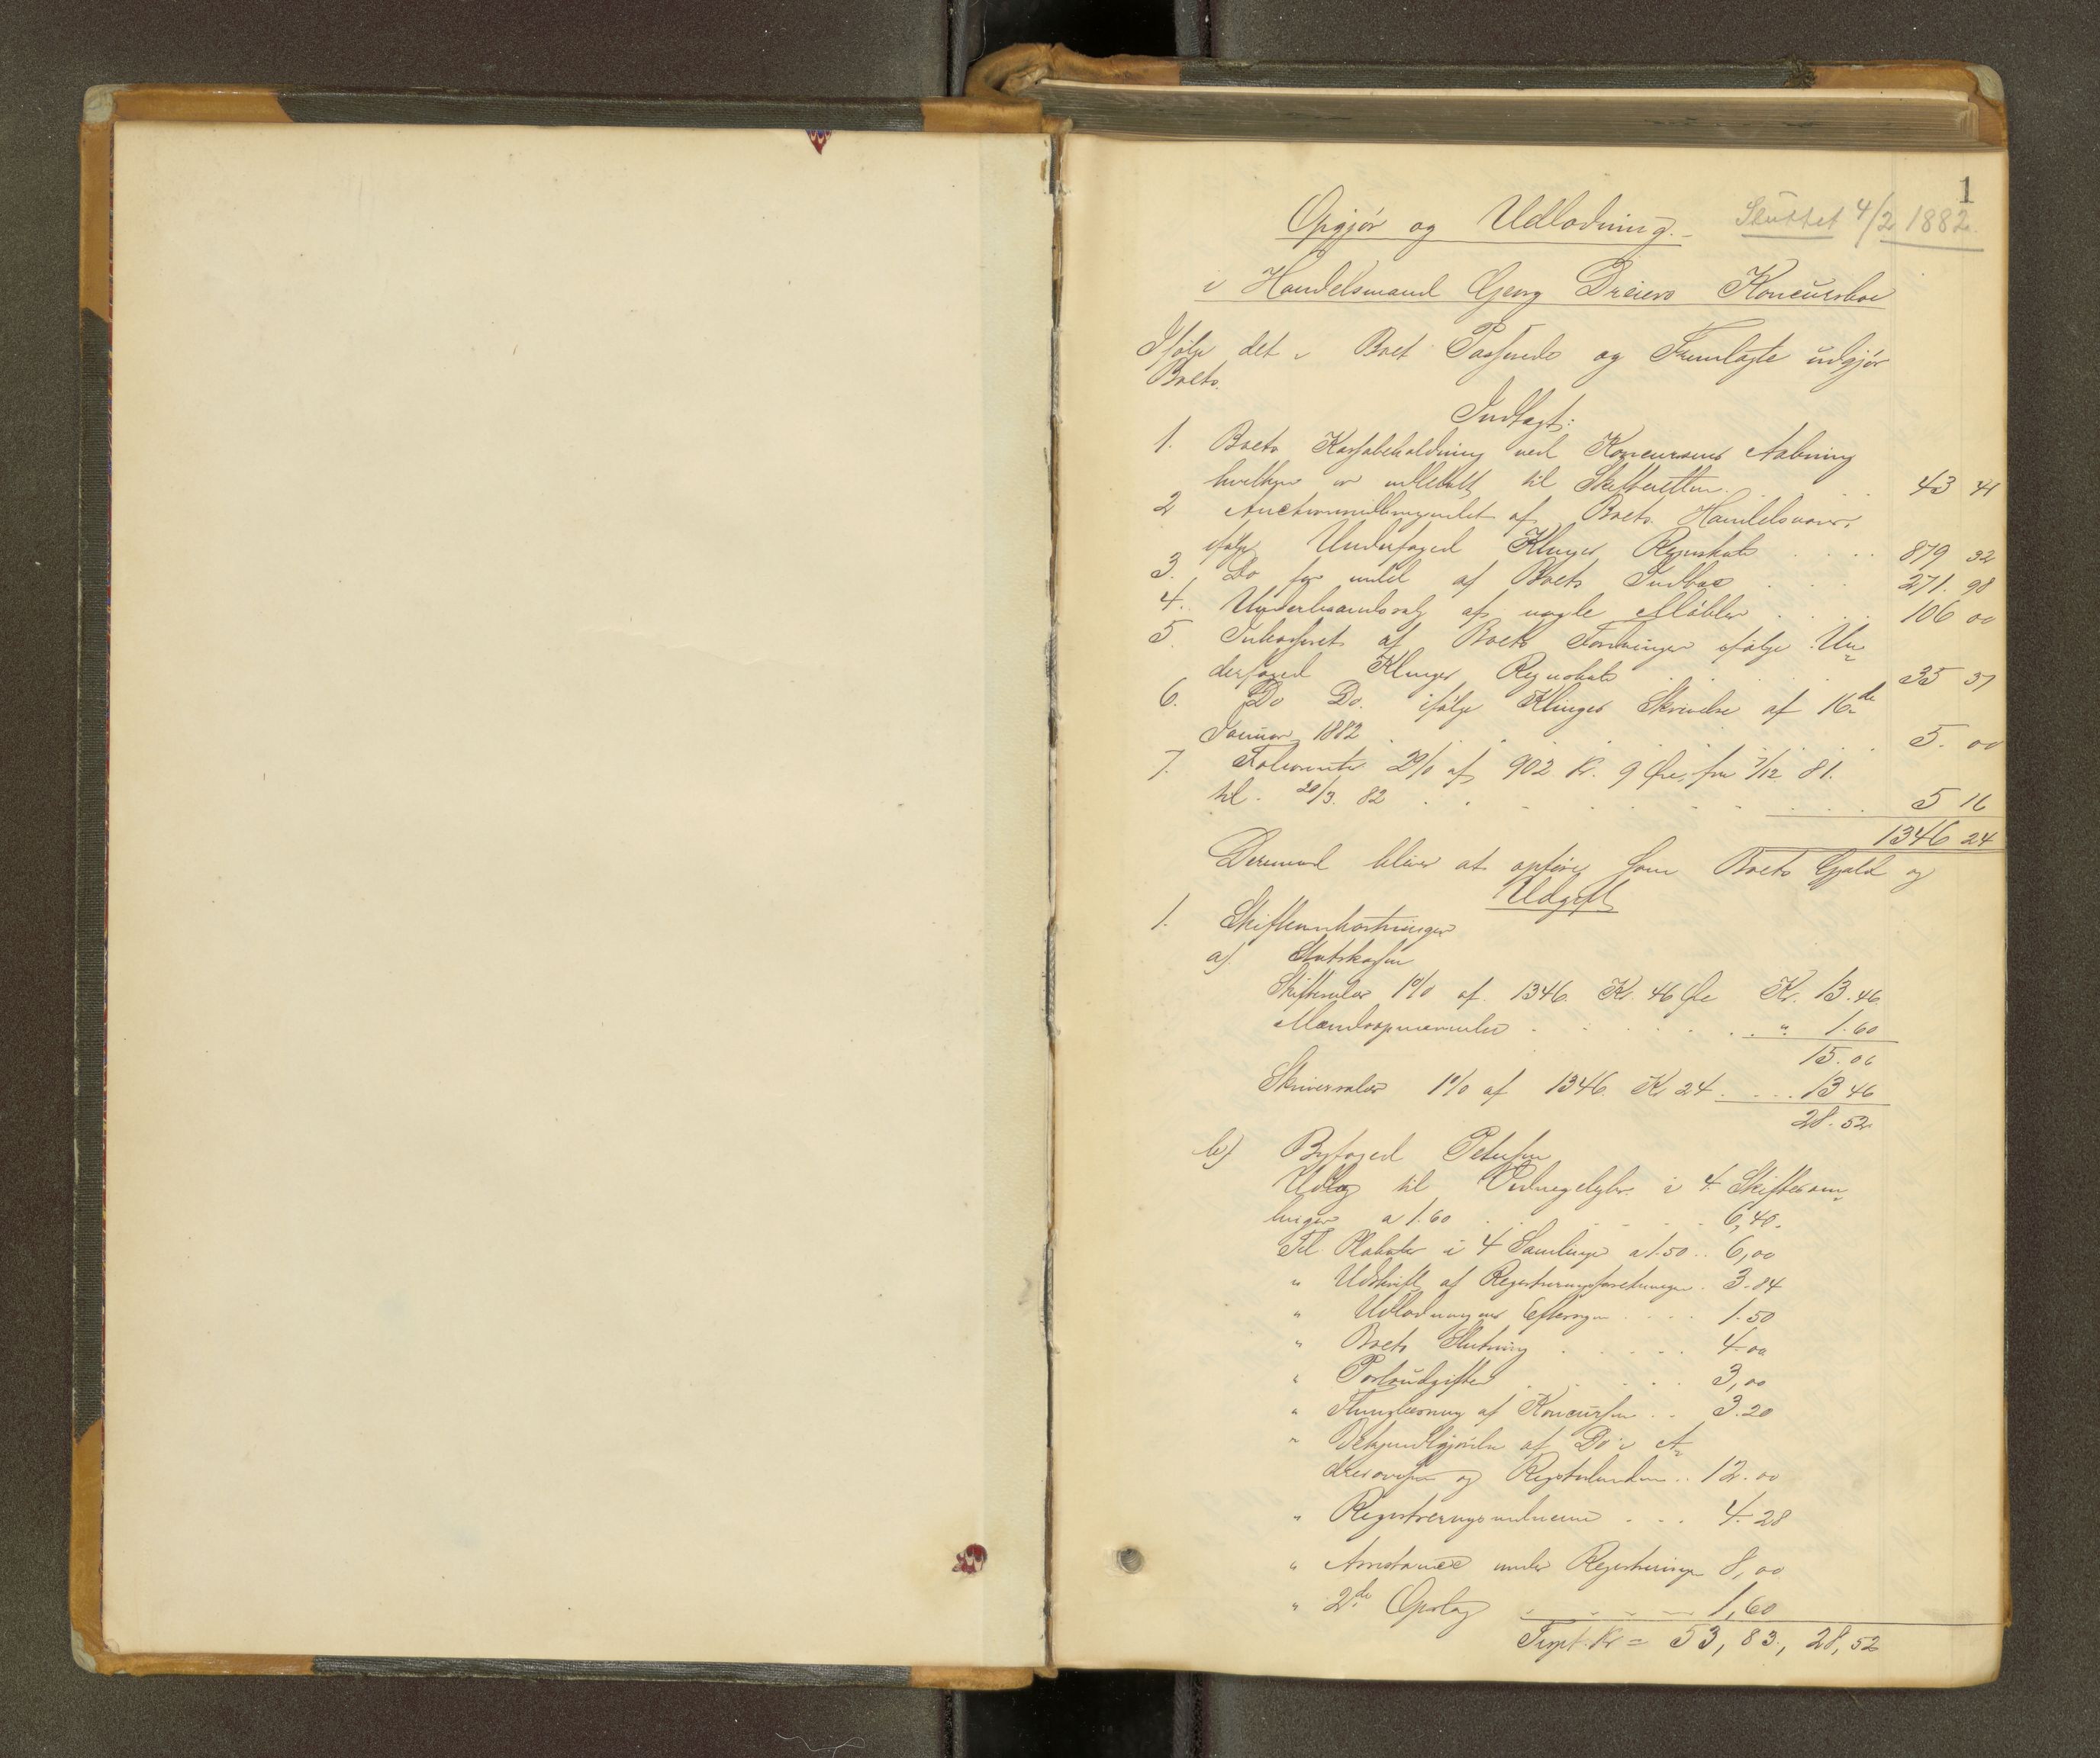 1
Opgjør og Udlodning.- Sluttet 4/2 1882.
i Handelsmand Georg Dreiers Koncursboe
Ifølge det i Boet Passerede og Fremlagte udgjør
Boets
Indtægt:
1. Boets Kassabeholdning ved Koncursens Aabning
hvilken er indbetalt til Skifteretten . . . 43 41
2 Auctionsudbringendet af Boets Handelsvarer,
ifølge Underfoged Klinges Regnskab . . . . 879 32
3. Do for indel af Boets Indbo . . . 271. 98
4. Underhaandssalg af nogle Møbler . . . . 106 00
5. Inkasseret af Boets Fordringer ifølge Un-
derfoged Klinges Regnskab . . . . 35 37
6. Do Do. ifølge Klinges Skrivelse af 16de
Januar 1882 . . . . . . 5. 00
7. Foliorenter 2% af 902 Kr. 9 Øre, fra 7/12 81.
til 20/3. 82 . . . . . . 5 16
1346 24
Derimod bliver at opføre som Boets Gjæld og
Udgift
1. Skifteomkostninger
a). Statskassen
Skiftesalær 1% af 1346. Kr. 46 Øre Kr. 13.46.
Mændsopnævnelse . . . . . . " 1.60
15.06
Skriversalær 1% af 1346. Kr 24 . . . . 13 46
28.52
b) Byfoged Petersen
Udlæg til Vidnegebyhr. i 4 Skiftesam-
linger a 1.60 . . . . . 6,40.
Til Plakater i 4 Samlinger a 1.50 .. 6,00
" Udskrift af Registreringsforretningen . 3.84
" Udlodningens Eftersyn . . . . 1.50
" Boets Slutning . . . . . 4 00
" Portoudgifter . . . . 3,00
" Thinglæsning af Koncursen . . 3.20
" Bekjendtgjørelse af Do i A-
dresavisen og Registertidenden .. 12.00
" Registreringsmændene . . . 4. 28
" Assistance under Registreringen 8,00
" 2de Opslag . . . . 1,60
Trspt. Kr = 53,83., 28,52